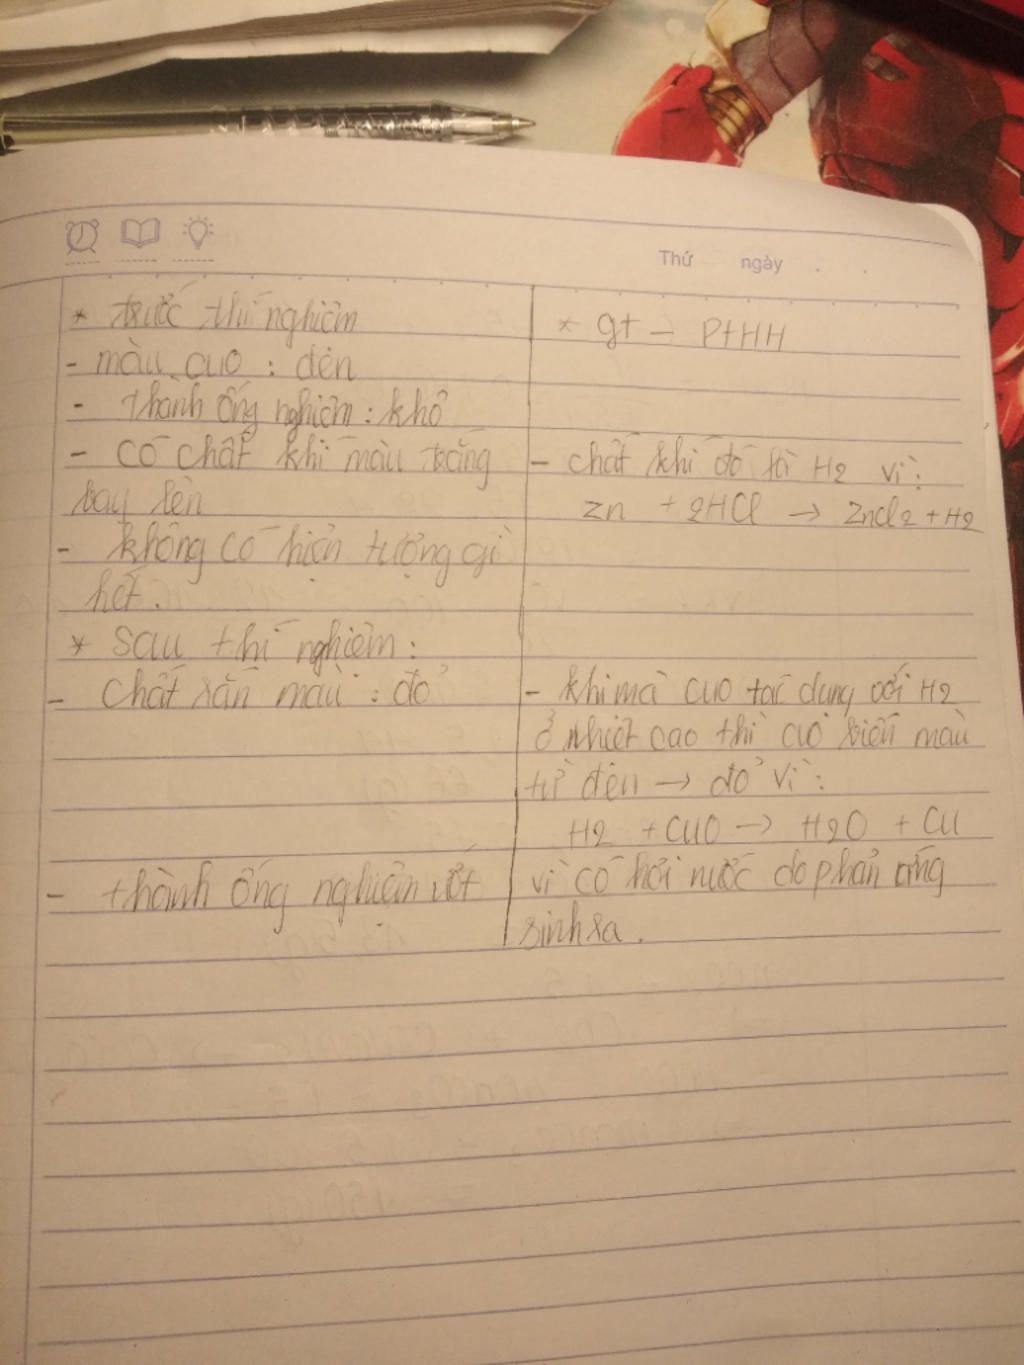 Thứ ngày
* trước thí nghiệm
- màu cuo : đen
- thành ống nghiệm : khô
- có chất khí màu trắng
bay lên
- không có hiện tượng gì
hết.
* sau thí nghiệm :
- chất rắn màu : đỏ
- thành ống nghiệm ướt
* gt - PtHH
- chất khí đó là H2 vì :
Zn + 2HCl → ZnCl2 + H2
- khi mà CuO tác dụng với H2
ở nhiệt cao thì cuo biến màu
từ đen → đỏ vì :
H2 + CuO → H2O + Cu
vì có hơi nước do phản ứng
sinh ra.